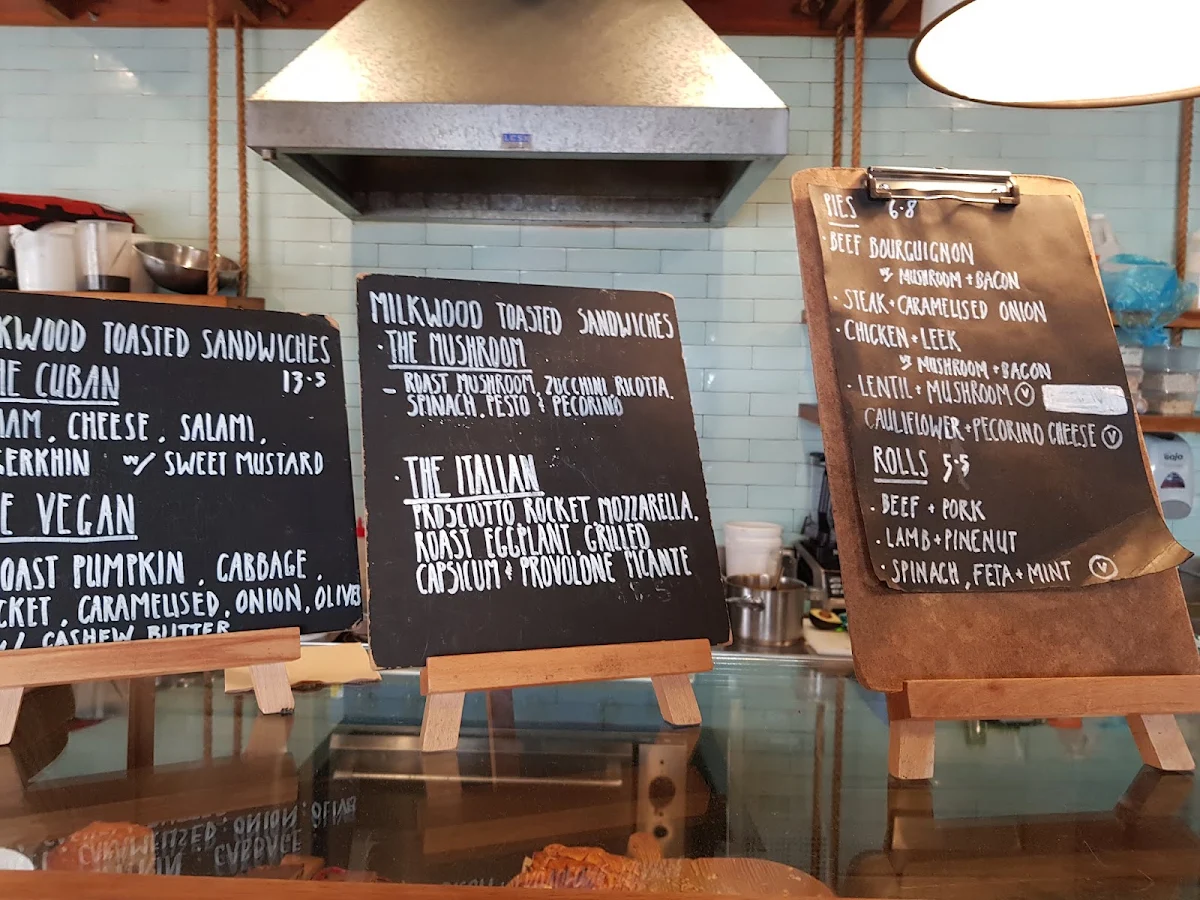 KWOOD TOASTED SANDWICHES
HE CUBAN 13.5
HAM, CHEESE, SALAMI,
GERKHIN W/ SWEET MUSTARD
E VEGAN
OAST PUMPKIN, CABBAGE,
CKET, CARAMELISED, ONION, OLIVES
W/ CASHEW BUTTER
MILKWOOD TOASTED SANDWICHES
• THE MUSHROOM
– ROAST MUSHROOM, ZUCCHINI, RICOTTA,
SPINACH, PESTO & PECORINO
• THE ITALIAN
PROSCIUTTO, ROCKET, MOZZARELLA,
ROAST EGGPLANT, GRILLED
CAPSICUM & PROVOLONE PICANTE
PIES 6.8
• BEEF BOURGUIGNON
W/ MUSHROOM + BACON
• STEAK + CARAMELISED ONION
• CHICKEN + LEEK
W/ MUSHROOM + BACON
• LENTIL + MUSHROOM Ⓥ
CAULIFLOWER + PECORINO CHEESE Ⓥ
ROLLS 5.5
• BEEF + PORK
• LAMB + PINENUT
• SPINACH, FETA + MINT Ⓥ